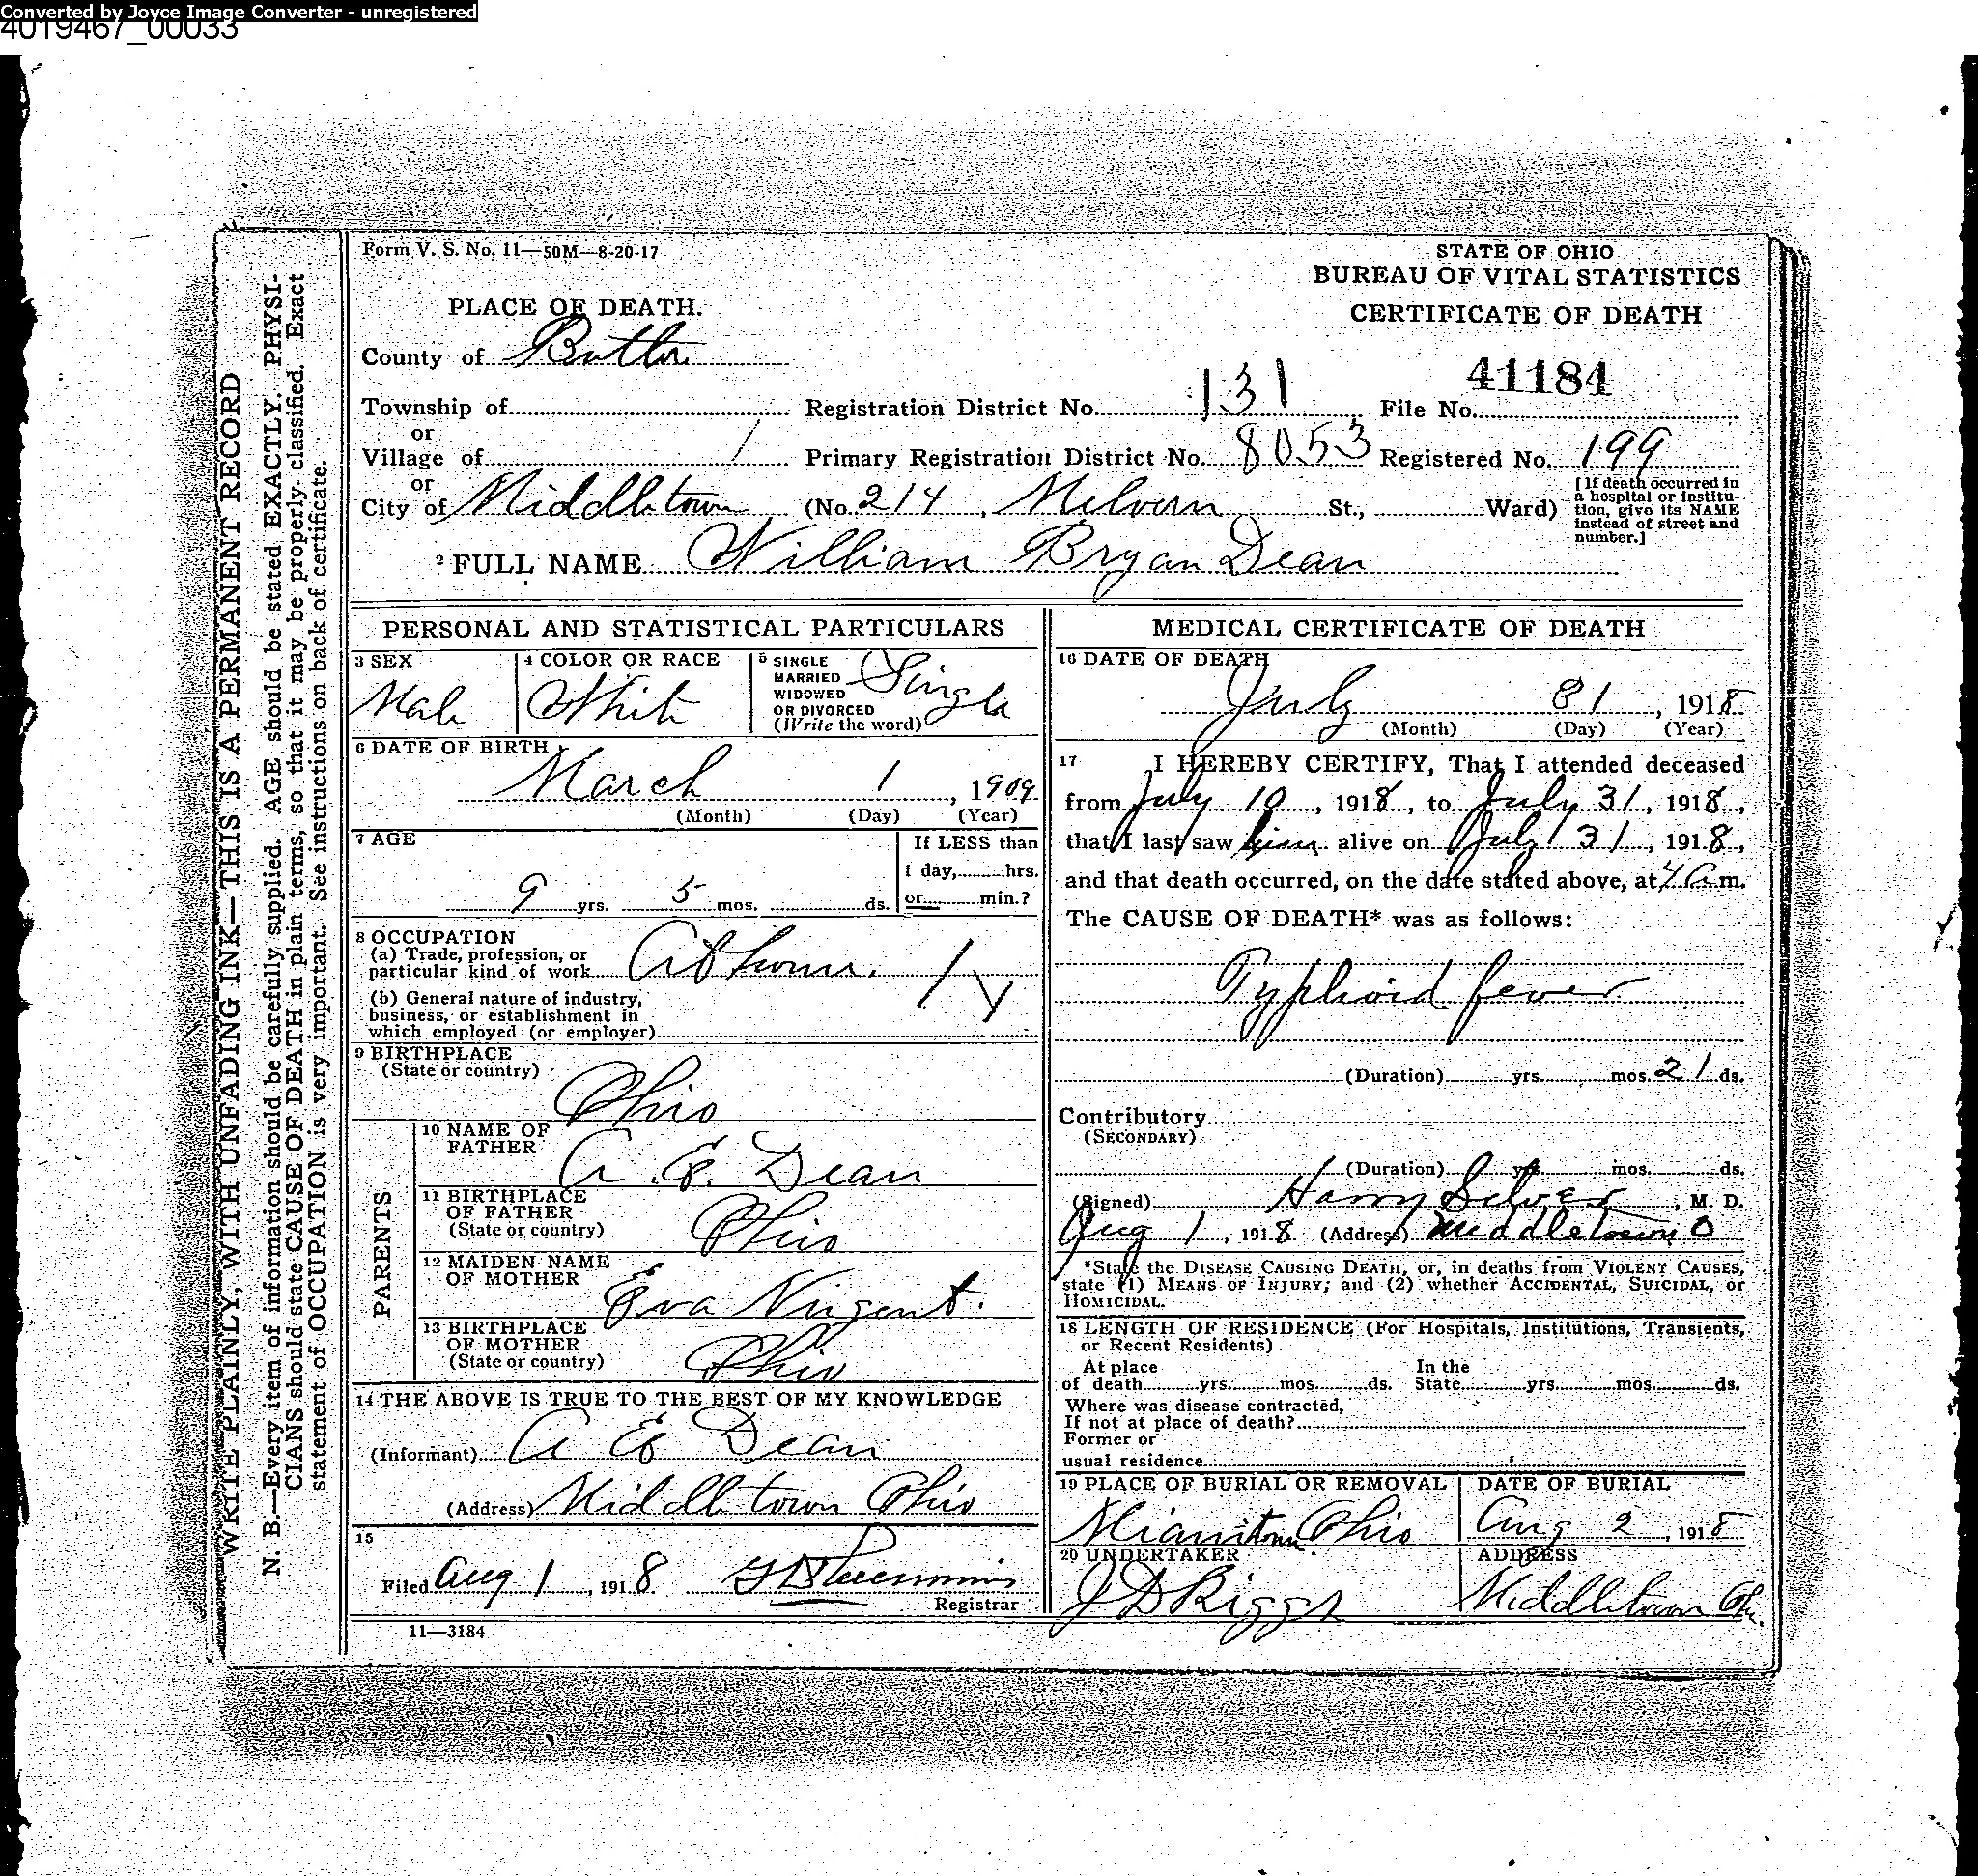 Converted by Joyce Image Converter - unregistered
4019467_00033
WRITE PLAINLY, WITH UNFADING INK—THIS IS A PERMANENT RECORD
N. B.—Every item of information should be carefully supplied. AGE should be stated EXACTLY. PHYSI-
CIANS should state CAUSE OF DEATH in plain terms, so that it may be properly classified. Exact
statement of OCCUPATION is very important. See instructions on back of certificate.
Form V. S. No. 11—50M—8-20-17
STATE OF OHIO
BUREAU OF VITAL STATISTICS
CERTIFICATE OF DEATH
PLACE OF DEATH.
County of Butler
41184
Township of Registration District No. 131 File No.
or
Village of Primary Registration District No. 8053 Registered No. 199
or
City of Middletown (No. 214, Melvern St., Ward)
[If death occurred in
a hospital or institu-
tion, give its NAME
instead of street and
number.]
2 FULL NAME William Bryan Dean
PERSONAL AND STATISTICAL PARTICULARS
3 SEX
Male
4 COLOR OR RACE
White
5 SINGLE
MARRIED
WIDOWED
OR DIVORCED
(Write the word)
Single
6 DATE OF BIRTH
March 1, 1909
(Month) (Day) (Year)
7 AGE
9 yrs. 5 mos. ds.
If LESS than
1 day, hrs.
or min.?
8 OCCUPATION
(a) Trade, profession, or
particular kind of work At home.
(b) General nature of industry,
business, or establishment in
which employed (or employer)
9 BIRTHPLACE
(State or country)
Ohio
PARENTS
10 NAME OF
FATHER
A. E. Dean
11 BIRTHPLACE
OF FATHER
(State or country)
Ohio
12 MAIDEN NAME
OF MOTHER
Eva Nugent.
13 BIRTHPLACE
OF MOTHER
(State or country)
Ohio
14 THE ABOVE IS TRUE TO THE BEST OF MY KNOWLEDGE
(Informant) A E Dean
(Address) Middletown Ohio
15
Filed Aug 1, 1918
Registrar
11—3184
MEDICAL CERTIFICATE OF DEATH
16 DATE OF DEATH
July 31, 1918
(Month) (Day) (Year)
17 I HEREBY CERTIFY, That I attended deceased
from July 10, 1918, to July 31, 1918,
that I last saw him alive on July 31, 1918,
and that death occurred, on the date stated above, at A m.
The CAUSE OF DEATH* was as follows:
Typhoid fever
(Duration) yrs. mos. 21 ds.
Contributory
(SECONDARY)
(Duration) yrs. mos. ds.
(Signed) Harry Silver, M. D.
Aug 1, 1918 (Address) Middletown O
*State the DISEASE CAUSING DEATH, or, in deaths from VIOLENT CAUSES,
state (1) MEANS OF INJURY; and (2) whether ACCIDENTAL, SUICIDAL, or
HOMICIDAL.
18 LENGTH OF RESIDENCE (For Hospitals, Institutions, Transients,
or Recent Residents)
At place In the
of death yrs. mos. ds. State yrs. mos. ds.
Where was disease contracted,
If not at place of death?
Former or
usual residence
19 PLACE OF BURIAL OR REMOVAL
Miamitown Ohio
DATE OF BURIAL
Aug 2, 1918
20 UNDERTAKER
J D Riggs
ADDRESS
Middletown Oh.